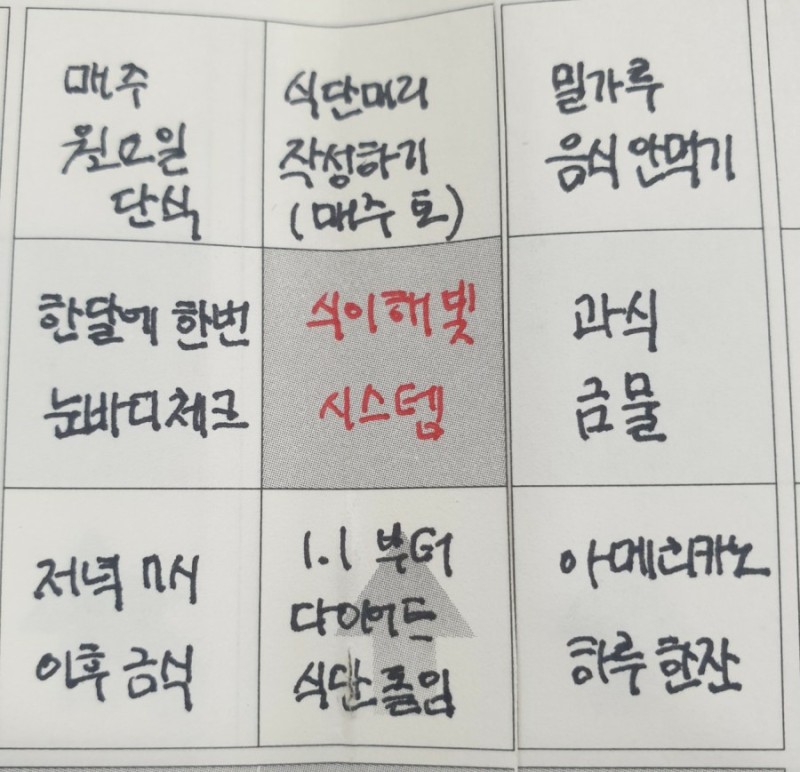 매주
월요일
단식
식단머리
작성하기
(매주 토)
밀가루
음식 안먹기
한달에 한번
눈바디체크
식이해빛
시스템
과식
금물
저녁 7시
이후 금식
1.1 부터
다이어트
식단 돌입
아메리카노
하루 한잔